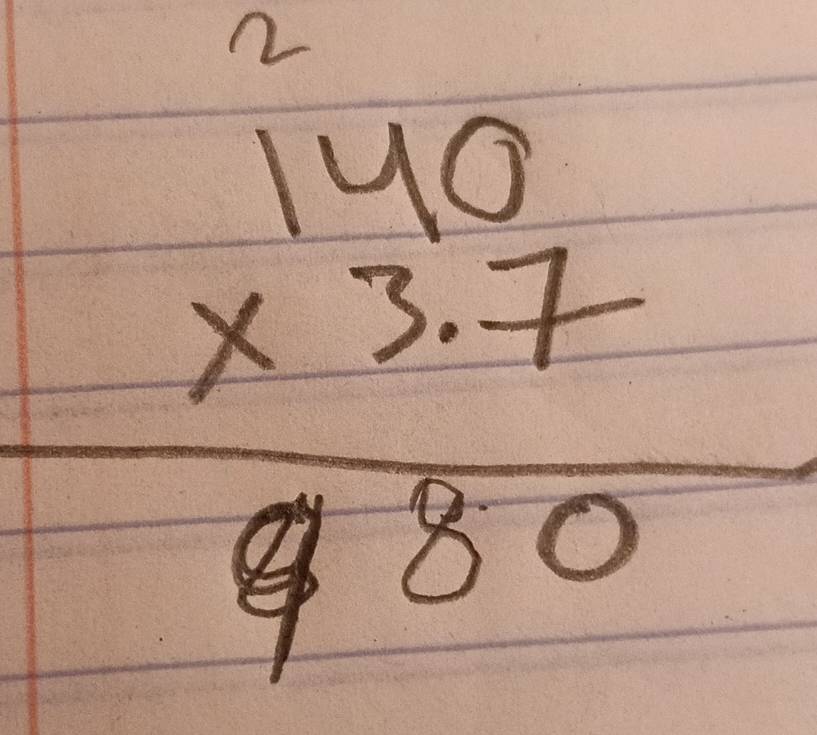 2
140
x 3.7
980